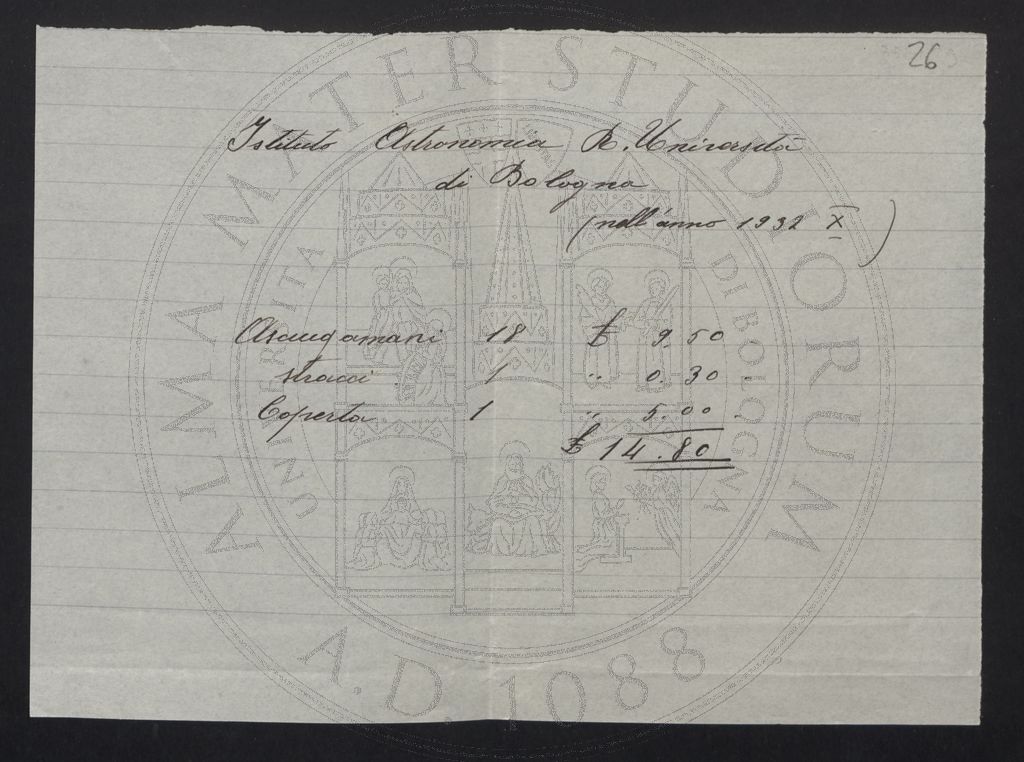 26
Istituto Astronomia R. Università
di Bologna
(nell'anno 1932 X)
Asciugamani 18 £ 9.50
stracci 1 " 0.30
Coperta 1 " 5.00
£ 14.80
ALMA MATER STUDIORUM
UNIVERSITÀ DI BOLOGNA
A.D. 1088